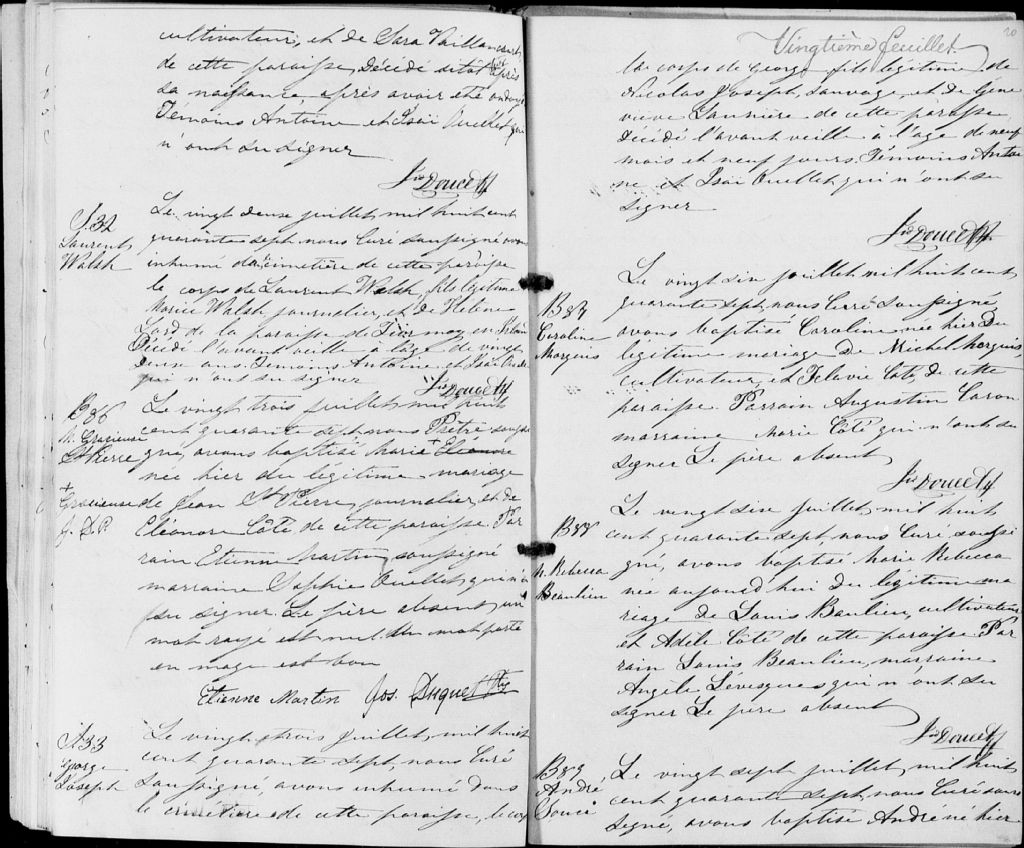 cultivateur, et de Sara Vaillancourt,
de cette paroisse, Décédé sitôt après
sa naissance, après avoir été ondoyé
Témoins Antoine et Isaï Ouellet qui
n'ont su signer
Jos Doucet Ptr
S.32
Laurent
Walsh
Le vingt deux juillet mil huit cent
quarante sept, nous Curé soussigné avons
inhumé dans cimetière de cette paroisse
le corps de Laurent Walsh, fils légitime
Maurice Walsh journalier, et de Helene
de la paroisse de
Décédé l'avant veille à l'âge de vingt
deux ans. Temoins Antoine et Isaï Ouellet
qui n'ont su signer
Jos Doucet Ptr
B86
M. Gracieuse
St Pierre
+
Gracieuse
J. D. P.
Le vingt trois juillet, mil huit
cent quarante sept nous Prêtre soussi
gné, avons baptisé Marie + Eléonore
née hier du légitime mariage
de Jean St Pierre, journalier, et de
Eléonore Côté de cette paroisse. Par
rain Etienne Martin soussigné
marraine Sophie Ouellet, qui n'a
su signer. Le père absent, un
mot rayé est nul. Un mot porté
en marge est bon
Etienne Martin Jos. Duguet Ptr
S.33
George
Joseph
Le vingt trois juillet, mil huit
cent quarante sept, nous Curé
soussigné, avons inhumé dans
le cimetière de cette paroisse, le corps
Vingtième feuillet
20
le corps de George fils légitime de
Nicolas Joseph, sauvage, et de Géne
vieve Launière de cette paroisse
Décédé l'avant veille à l'âge de neuf
mois et neuf jours. Témoins Antoi
ne et Isaï Ouellet qui n'ont su
signer
Jos Doucet Ptr
B87
Caroline
Morquis
Le vingt six juillet mil huit cent
quarante sept, nous Curé soussigné
avons baptisé Caroline née hier du
légitime mariage de Michel Morquis
cultivateur, et Felavie Côté, de cette
paroisse. Parrain Augustin Caron
marraine Marie Côté qui n'ont su
signer Le père absent
Jos Doucet Ptr
B88
M. Rebecca
Beaulieu
Le vingt six juillet, mil huit
cent quarante sept, nous Curé soussi
gné, avons baptisé Marie Rebecca
née aujourd'hui du légitime ma
riage de Louis Baulieu, cultivateur
et Adèle Côté de cette paroisse Par
rain Louis Beaulieu, marraine
Angèle Lévesques qui n'ont su
signer Le père absent
Jos Doucet Ptr
B89
André
Souci
Le vingt sept juillet, mil huit
cent quarante sept, nous Curé sous
signé, avons baptisé André né hier